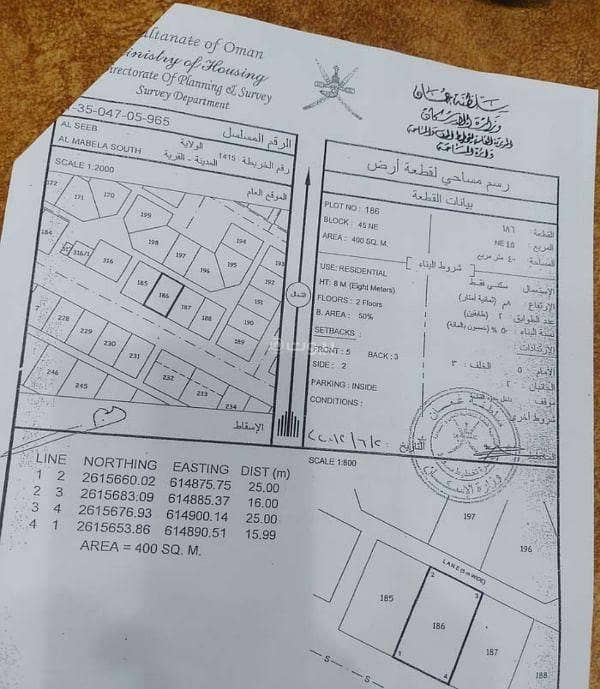 ltanate of Oman
inistry of Housing
irectorate Of Planning & Survey
Survey Department
سلطنة عمان
وزارة الإسكان
دائرة المساحة
-35-047-05-965
الرقم المسلسل
AL SEEB
الولاية
AL MABELA SOUTH
المدينة - القرية
رقم الخريطة 1415
SCALE 1:2000
الموقع العام
رسم مساحي لقطعة أرض
بيانات القطعة
PLOT NO : 186
القطعة : ١٨٦
BLOCK : 45 NE
المربع :
AREA : 400 SQ. M.
شروط البناء
USE: RESIDENTIAL
الاستعمال : سكني فقط
HT: 8 M (Eight Meters)
FLOORS : 2 Floors
عدد الطوابق ٢ (طابقين)
B. AREA : 50%
SETBACKS :
الارتدادات :
FRONT : 5 BACK : 3
الأمام : ٥ الخلف : ٣
SIDE : 2
PARKING : INSIDE
CONDITIONS :
شروط أخرى
التاريخ
172
171
170
199
198
197
196
194
195
193
192
191
190
189
184
317
316/1
316
185
186
187
188
228
229
230
231
232
233
234
246
245
الشمال
الإسقاط
LINE NORTHING EASTING DIST (m)
1 2 2615660.02 614875.75 25.00
2 3 2615683.09 614885.37 16.00
3 4 2615676.93 614900.14 25.00
4 1 2615653.86 614890.51 15.99
AREA = 400 SQ. M.
SCALE 1:600
197
196
LANE (5 m WIDE)
2
3
185
186
187
188
1
4
S
S